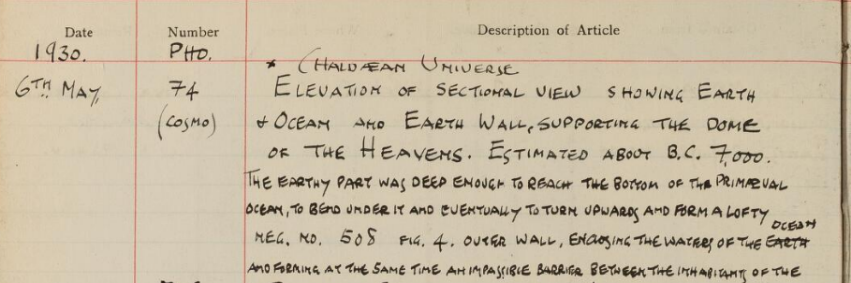 Date Number Description of Article
1930. PHO.
* CHALDÆAN UNIVERSE
6TH MAY, 74 ELEVATION OF SECTIONAL VIEW SHOWING EARTH
(COSMO) & OCEAN AND EARTH WALL, SUPPORTING THE DOME
OF THE HEAVENS. ESTIMATED ABOUT B.C. 7,000.
THE EARTHY PART WAS DEEP ENOUGH TO REACH THE BOTTOM OF THE PRIMÆVAL
OCEAN, TO BEND UNDER IT AND EVENTUALLY TO TURN UPWARDS AND FORM A LOFTY
OCEAN
NEG. NO. 508 FIG. 4. OUTER WALL, ENCLOSING THE WATERS OF THE EARTH
AND FORMING AT THE SAME TIME AN IMPASSIBLE BARRIER BETWEEN THE INHABITANTS OF THE